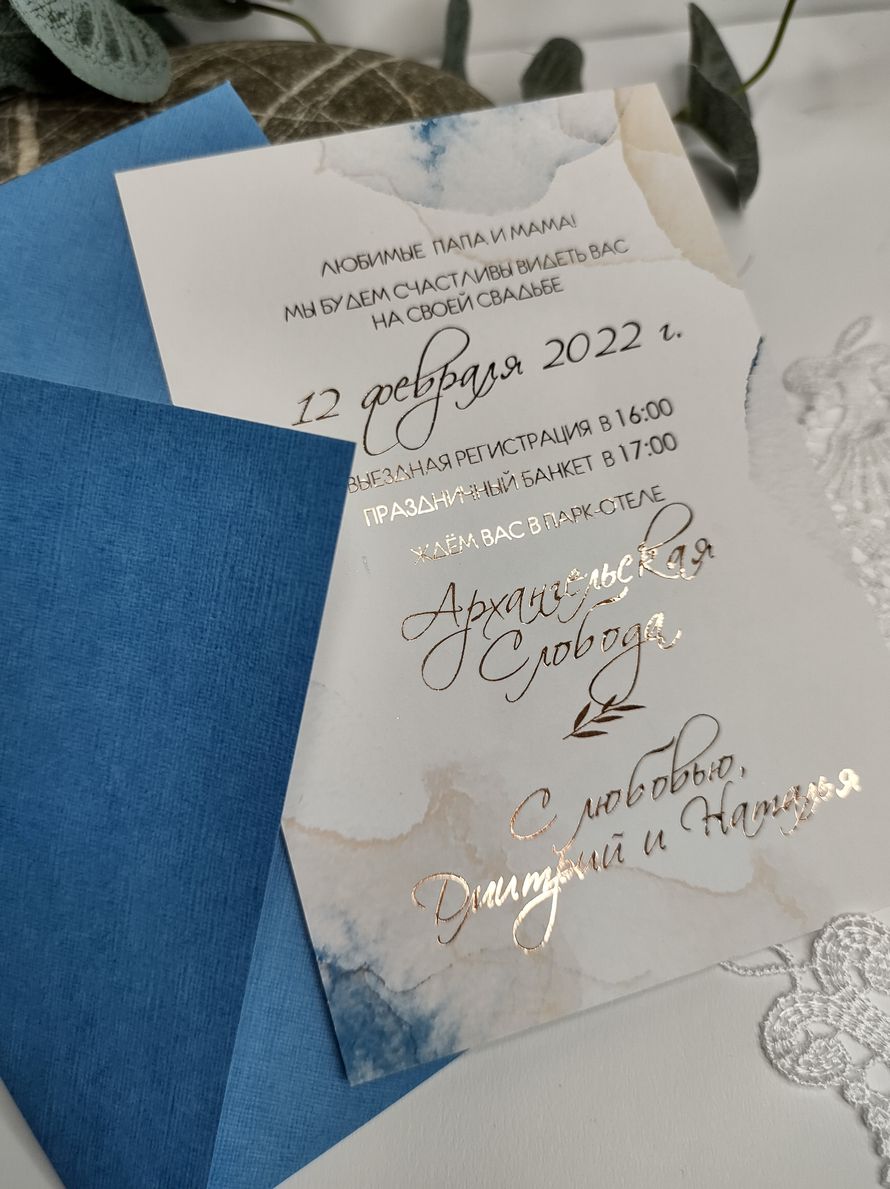 ЛЮБИМЫЕ ПАПА И МАМА!
МЫ БУДЕМ СЧАСТЛИВЫ ВИДЕТЬ ВАС
НА СВОЕЙ СВАДЬБЕ
12 февраля 2022 г.
ВЫЕЗДНАЯ РЕГИСТРАЦИЯ В 16:00
ПРАЗДНИЧНЫЙ БАНКЕТ В 17:00
ЖДЁМ ВАС В ПАРК-ОТЕЛЕ
Архангельская
Слобода
С любовью,
Дмитрий и Наталья